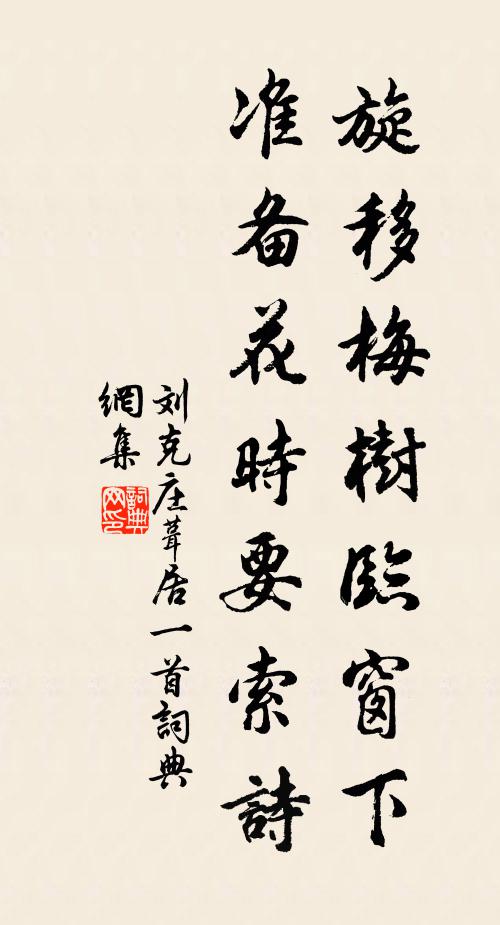 旋移梅樹臨窗下
准备花時要索詩
刘克庄葺居一首詞典
網集
詞典网印